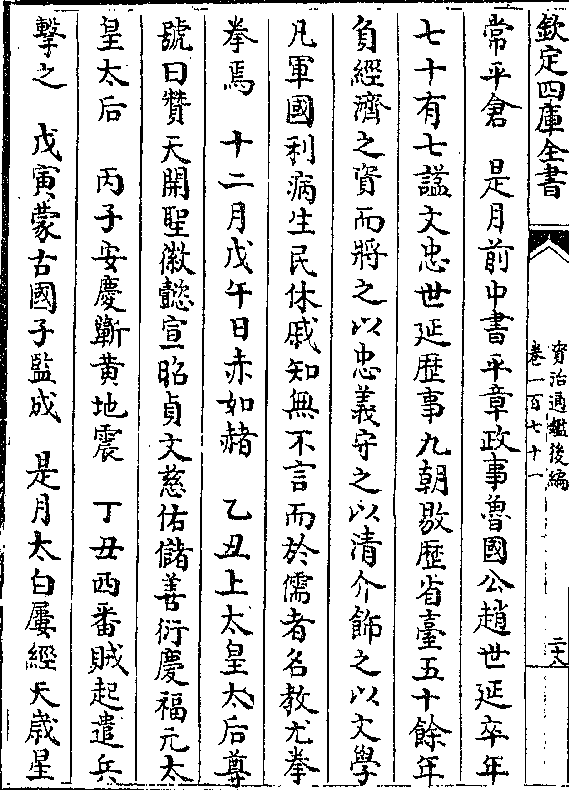 欽定四庫全書
資治通鑑後編
卷一百七十一
二十六
常平倉　是月前中書平章政事魯國公趙世延卒年
七十有七謚文忠世延歴事九朝敭歴省臺五十餘年
負經濟之資而將之以忠義守之以清介飾之以文學
凡軍國利病生民休戚知無不言而於儒者名教尤拳
拳焉　十二月戊午日赤如赭　乙丑上太皇太后尊
號曰贊天開聖徽懿宣昭貞文慈佑儲善衍慶福元太
皇太后　丙子安慶蘄黄地震　丁丑西番賊起遣兵
擊之　戊寅蒙古國子監成　是月太白屢經天歳星